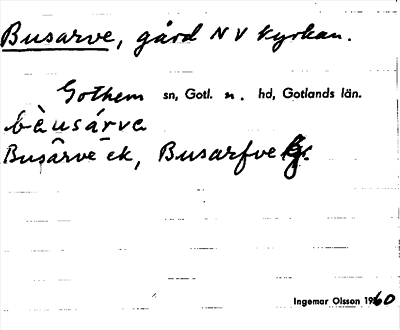 Busarve, gård NV kyrkan.
Gothem sn, Gotl. n. hd, Gotlands län.
bèusárva
Busarve ek, Busarfve
Ingemar Olsson 1960